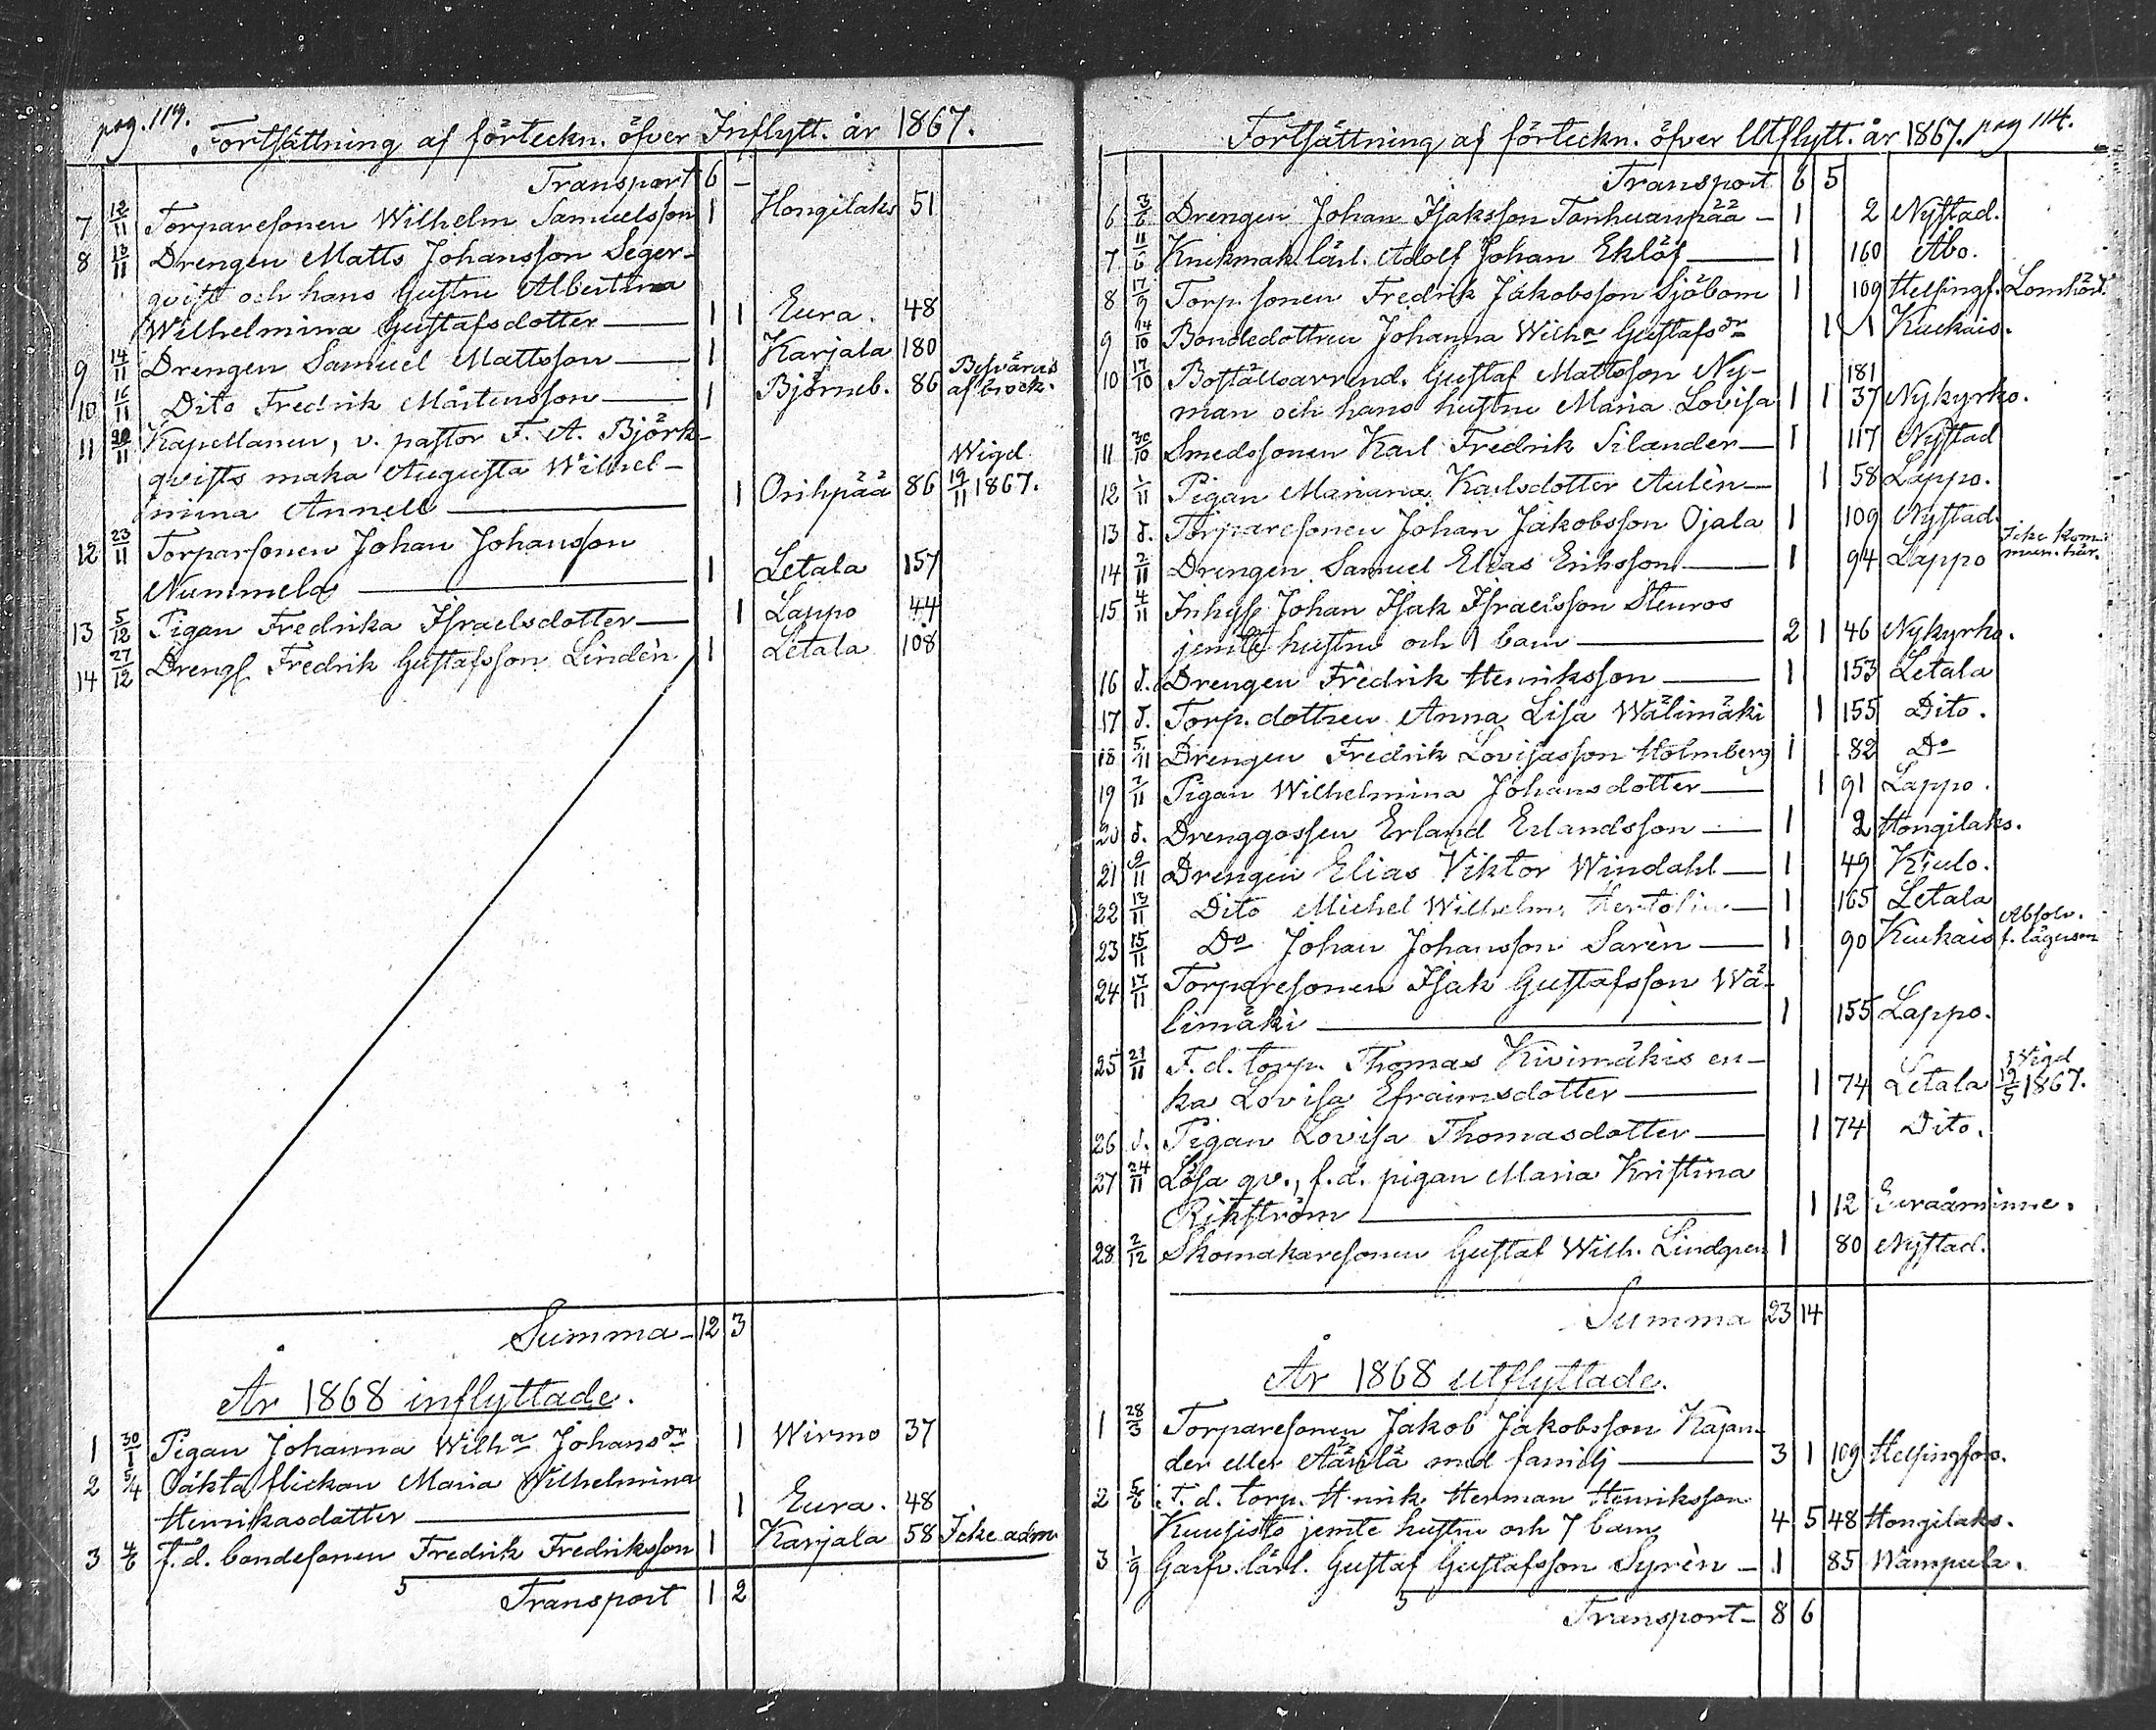 pag. 114.
Fortsättning af förteckn. öfver Inflytt. år 1867.
Transport 6 -
7 12/11 Torparesonen Wilhelm Samuelsson 1 Hongilaks 51
8 13/11 Drengen Matts Johansson Seger-
qvist och hans hustru Albertina
Wilhelmina Gustafsdotter 1 1 Eura. 48
9 14/11 Drengen Samuel Mattsson 1 Karjala 180
10 16/11 Dito Fredrik Mårtensson 1 Björneb. 86 Besväras af
11 20/11 Kapellanen, v. pastor F. A. Björk-
qvists maka Augusta Wilhel-
mina Annell 1 Orihpää 86 Wigd 19/11 1867.
12 23/11 Torparsonen Johan Johansson
Nummela 1 Letala 157
13 5/12 Pigan Fredrika Israelsdotter 1 Lappo 44
14 27/12 Drengs. Fredrik Gustafsson Lindèn 1 Letala 108
Summa 12 3
År 1868 inflyttade.
1 30/1 Pigan Johanna Wilha Johansdr 1 Wirmo 37
2 5/4 Oäkta flickan Maria Wilhelmina
Henrikasdotter 1 Eura. 48
3 4/6 f.d. bondesonen Fredrik Fredriksson 1 Karjala 58 Icke adm
5 Transport 1 2
Fortsättning af förteckn. öfver Utflytt. år 1867. pag 114.
Transport 6 5
6 3/6 Drengen Johan Isaksson Tanhuanpää 1 2 Nystad.
7 11/6 Krukmak. lärl. Adolf Johan Eklöf 1 160 Åbo.
8 17/9 Torp. sonen Fredrik Jakobsson Sjöbom 1 109 Helsingf.
9 14/10 Bondedottren Johanna Wilha Gustafsdr 1 1 Kuckais.
10 17/10 Boställsarrend. Gustaf Mattsson Ny- 181
man och hans hustru Maria Lovisa 1 1 37 Nykyrko.
11 30/10 Smedssonen Karl Fredrik Silander 1 117 Nystad
12 1/11 Pigan Mariana Karlsdotter Aulèn 1 58 Lappo.
13 d. Torparesonen Johan Jakobsson Ojala 1 109 Nystad.
14 2/11 Drengen Samuel Elias Eriksson 1 94 Lappo Icke kom-
men. här.
15 4/11 Inhys. Johan Isak Israelsson Stenros
jemte hustru och 1 barn 2 1 46 Nykyrko.
16 d. Drengen Fredrik Henriksson 1 153 Letala
17 d. Torp. dottren Anna Lisa Wälimäki 1 155 Dito.
18 5/11 Drengen Fredrik Lovisasson Holmberg 1 82 Do
19 7/11 Pigan Wilhelmina Johansdotter 1 91 Lappo.
20 d. Drenggossen Erland Erlandsson 1 2 Hongilaks.
21 9/11 Drengen Elias Viktor Windahl 1 49 Kiulo.
22 13/11 Dito Michel Wilhelm 1 165 Letala
23 15/11 Do Johan Johansson Sarèn 1 90 Kuckais Absolv.
24 17/11 Torparesonen Isak Gustafsson Wä-
limäki 1 155 Lappo.
25 21/11 F. d. torp. Thomas Kivimäkis en-
ka Lovisa Efraimsdotter 1 74 Letala Wigd 19/5 1867.
26 d. Pigan Lovisa Thomasdotter 1 74 Dito.
27 24/11 Lösa qv., f.d. pigan Maria Kristina
Rikström 1 12 Euraåminne.
28 2/12 Skomakaresonen Gustaf Wilh. Lindgren 1 80 Nystad.
Summa 23 14
År 1868 utflyttade.
1 28/3 Torparesonen Jakob Jakobsson Kajan-
der eller med familj 3 1 109 Helsingfors.
2 5/6 F. d. torp. Henrik Herman Henriksson
Kuusisto jemte hustru och 7 barn 4 5 48 Hongilaks.
3 1/9 Garfv. lärl. Gustaf Gustafsson Syrèn 1 85 Wampula.
5 Transport 8 6